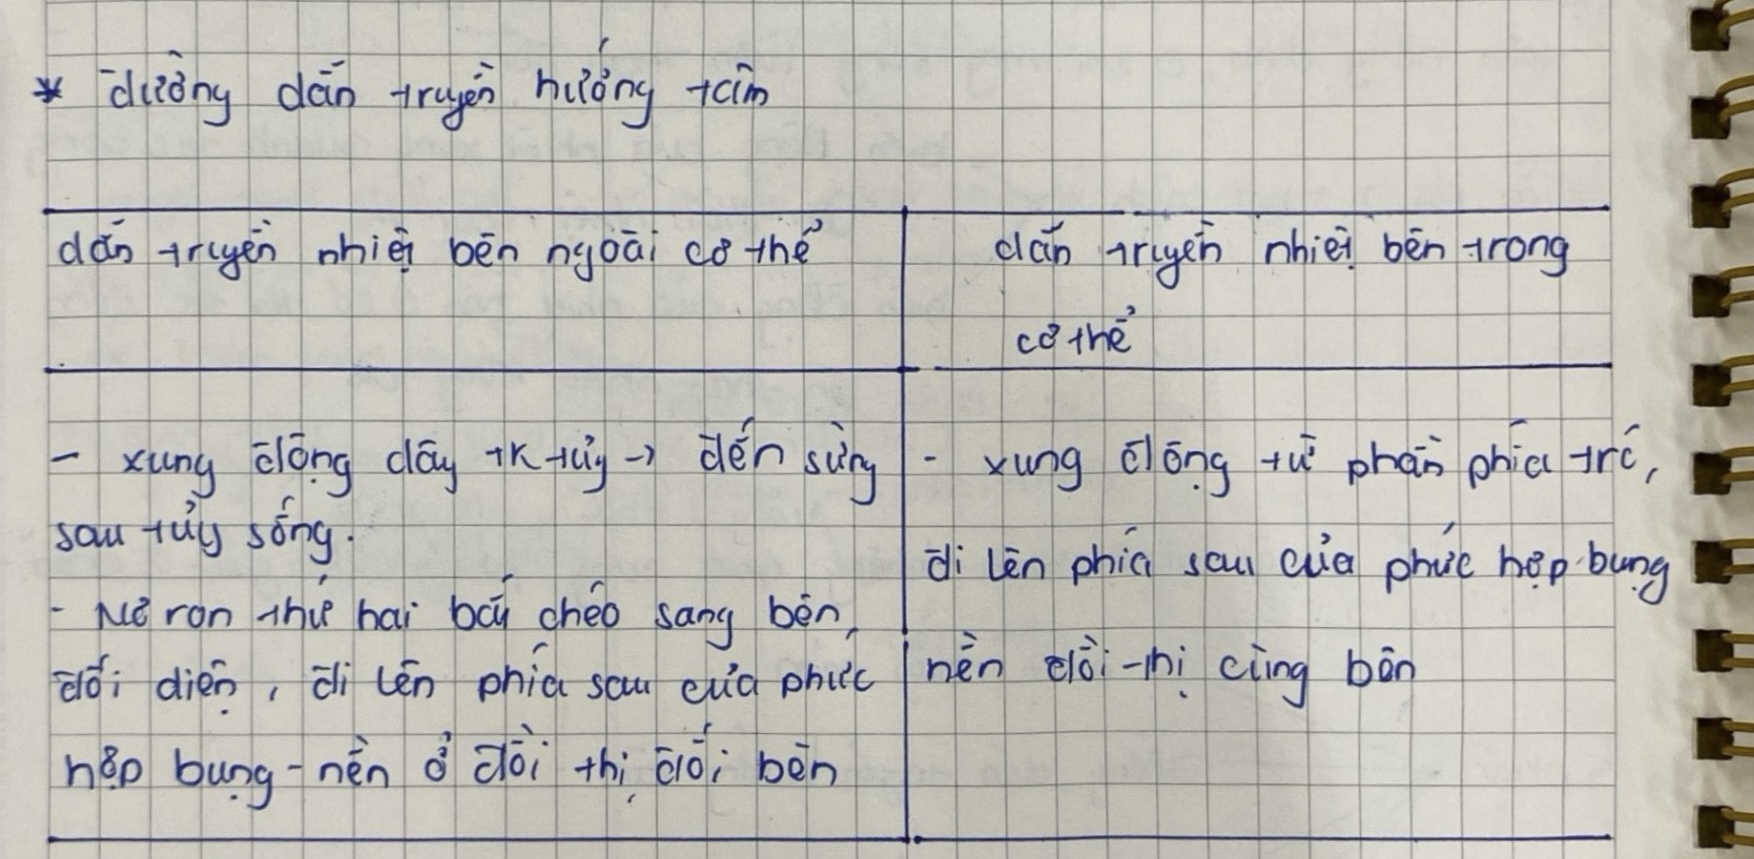 * đường dẫn truyền hướng tâm
dẫn truyền nhiệt bên ngoài cơ thể
dẫn truyền nhiệt bên trong
cơ thể
- xung động dây tk tủy → đến sừng
sau tủy sống.
- Nơ ron thứ hai bắt chéo sang bên
đối diện, đi lên phía sau của phức
hợp bụng - nền ở đồi thị đối bên
- xung động từ phần phía trc,
đi lên phía sau của phức hợp bụng
nền đồi thị cùng bên